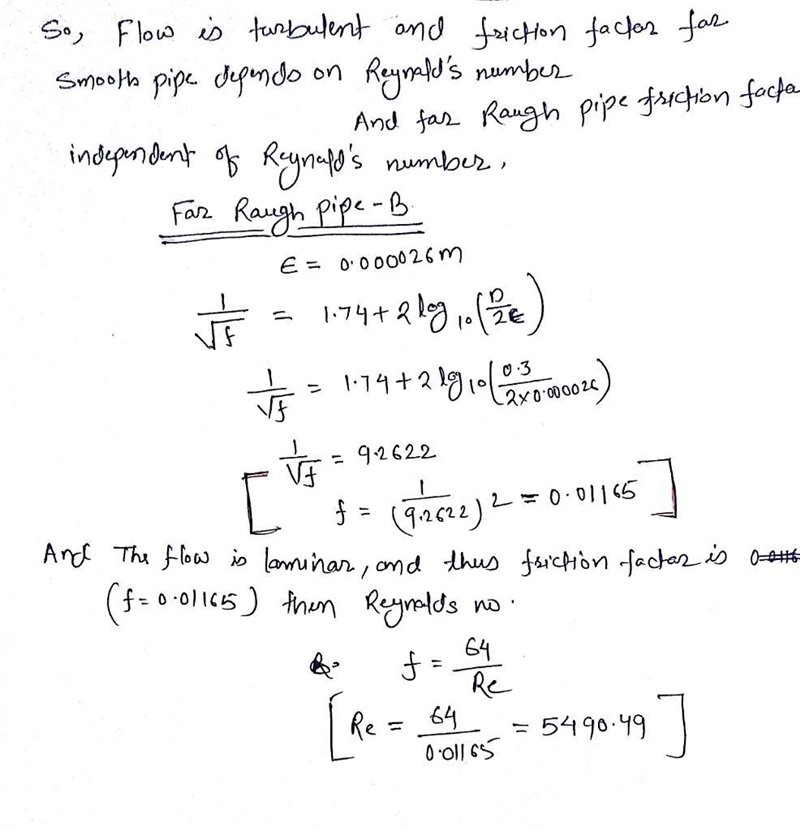 So, Flow is turbulent and friction factor for
smooth pipe depends on Reynald's number
And for Rough pipe friction facto
independent of Reynald's number,
For Rough pipe - B
ϵ = 0.000026m
1/√f = 1.74 + 2 log 10 (D/2ϵ)
1/√f = 1.74 + 2 log 10 (0.3/2×0.000026)
1/√f = 9.2622
[ f = (1/9.2622)2 = 0.01165 ]
And The flow is laminar, and thus friction factor is 0.0116
(f = 0.01165) then Reynolds no.
f = 64/Re
[ Re = 64/0.01165 = 5490.49 ]